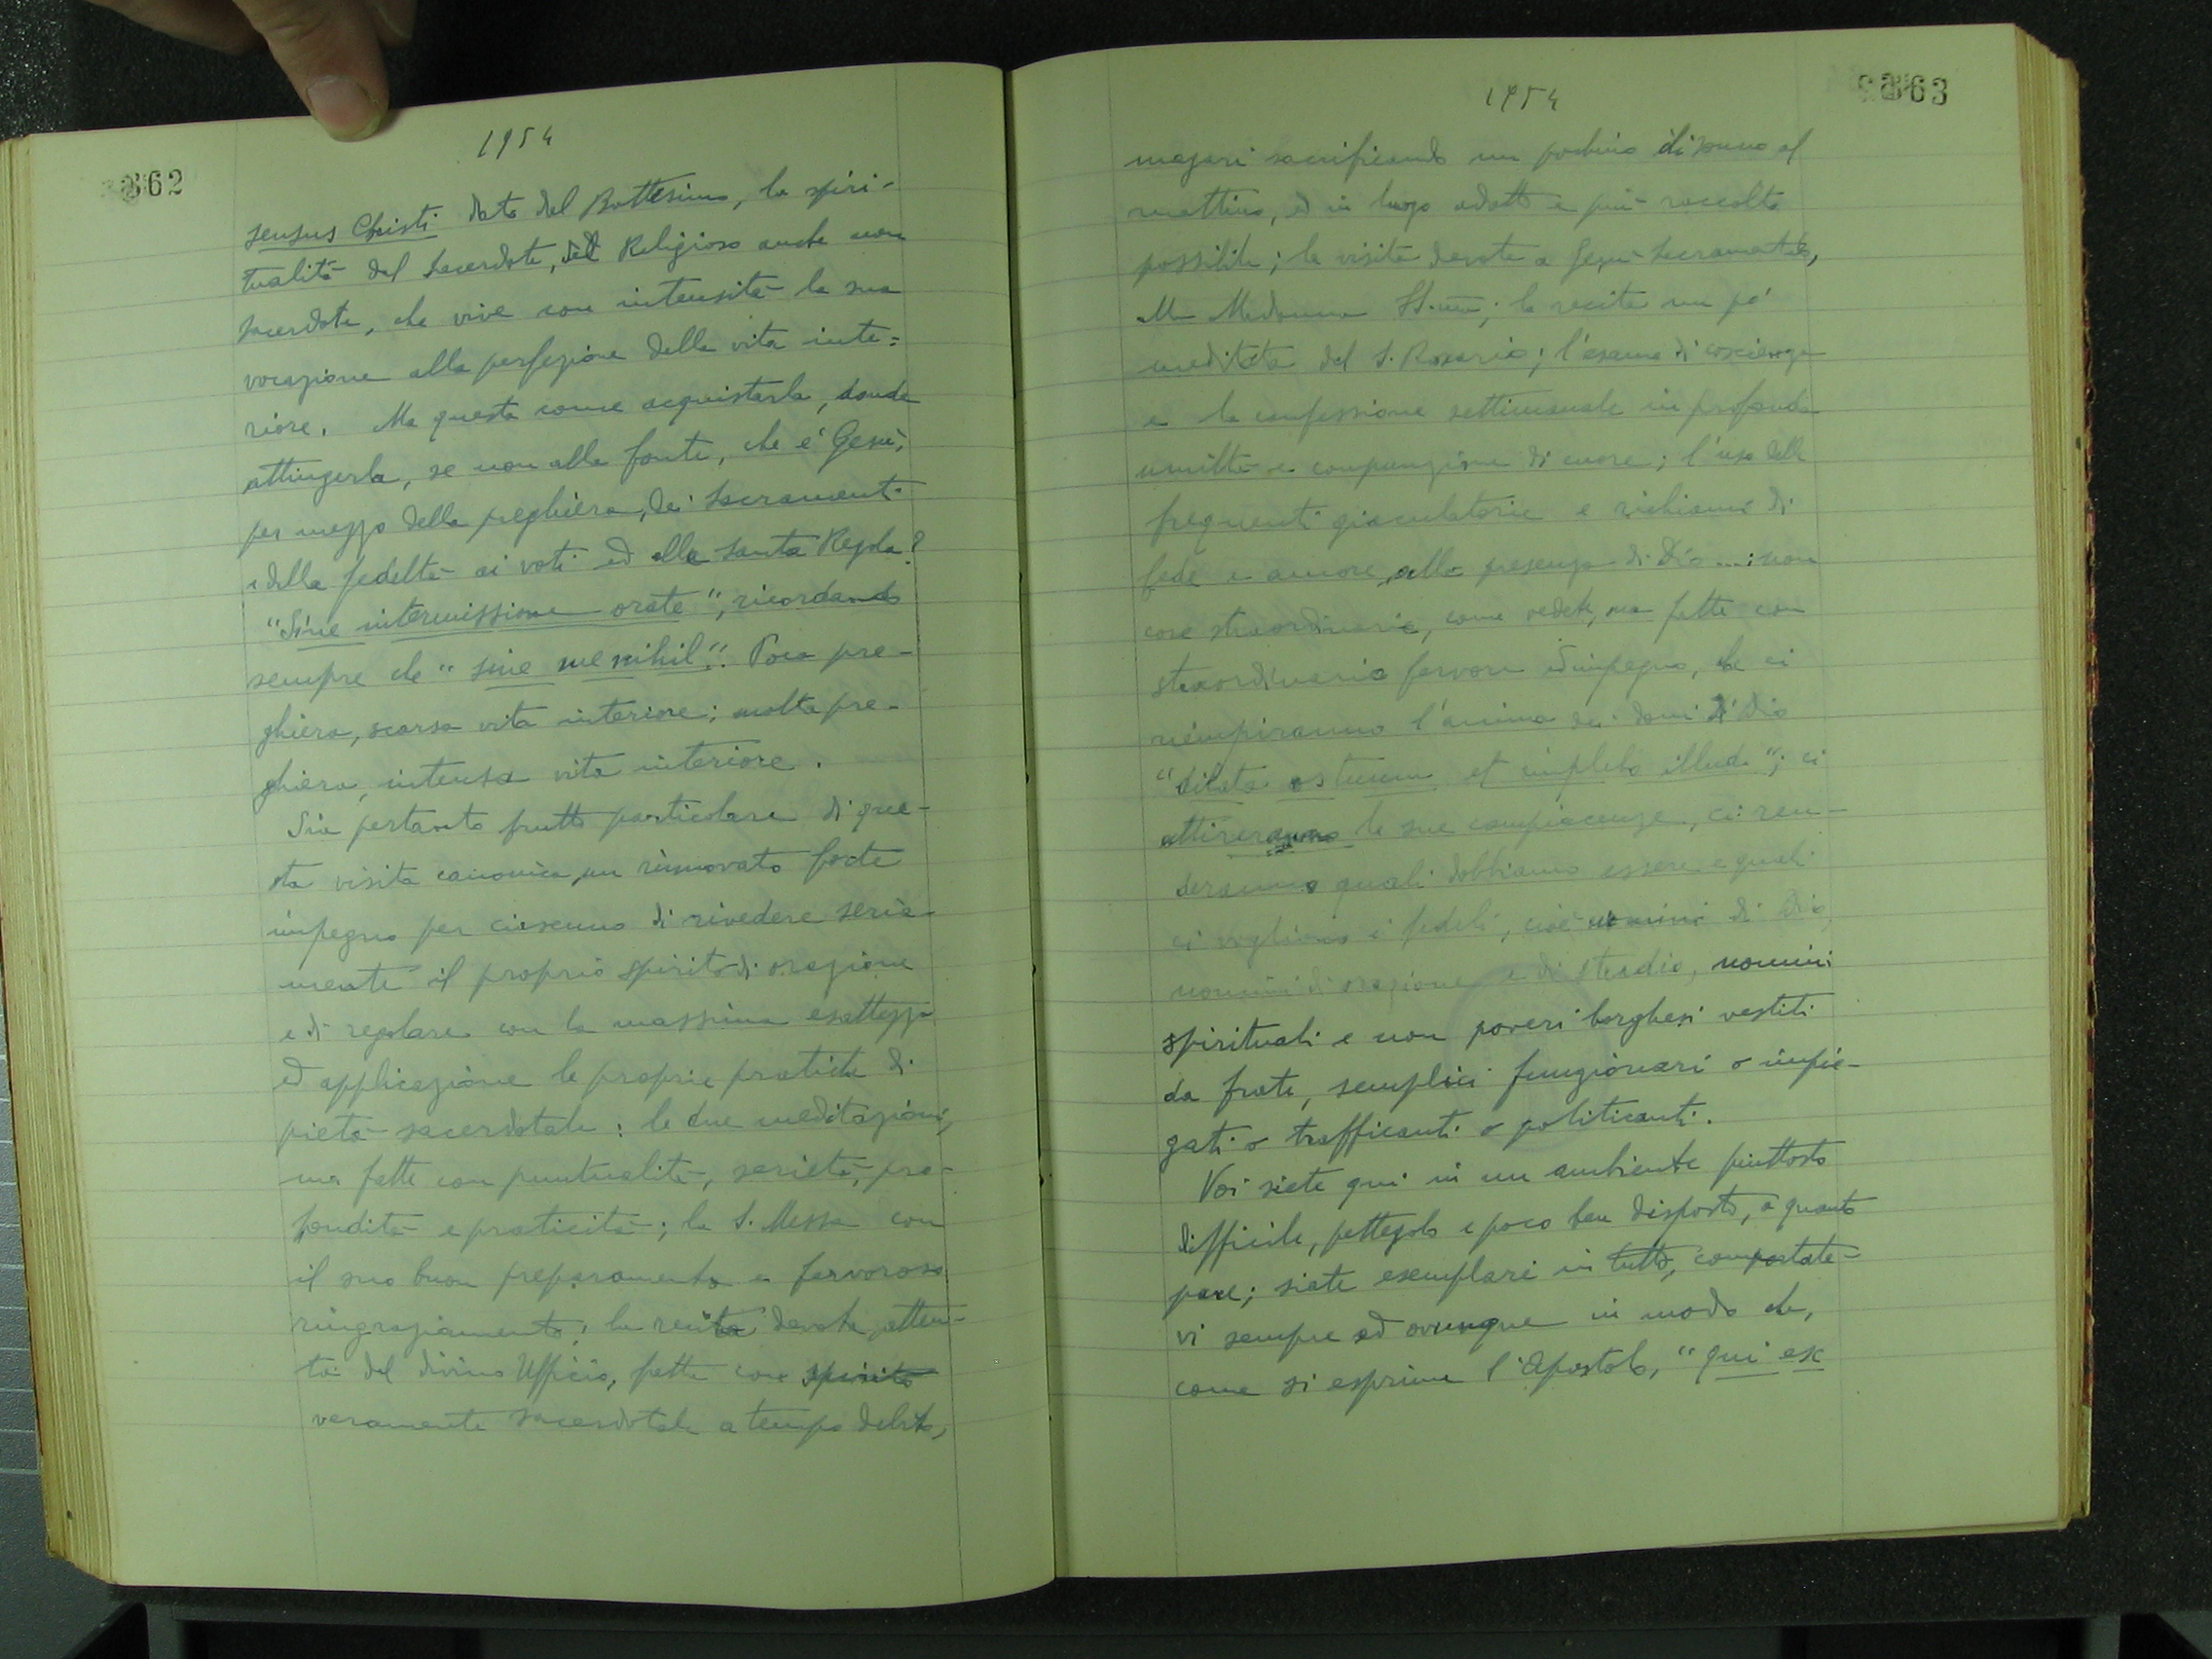 362
1954
sensus Christi dato dal Battesimo, la spiri-
tualità del Sacerdote, del Religioso anche non
sacerdote, che vive con intensità la sua
vocazione alla perfezione della vita inte=
riore. Ma questa come acquistarla, donde
attingerla, se non alla fonte, che è Gesù,
per mezzo della preghiera, dei Sacramenti
e della fedeltà ai voti ed alla Santa Regola?
"Sine intermissione orate", ricordando
sempre che "sine me nihil". Poca pre-
ghiera, scarsa vita interiore; molta pre-
ghiera, intensa vita interiore.
Sia pertanto frutto particolare di que-
sta visita canonica, un rinnovato forte
impegno per ciascuno di rivedere seria-
mente il proprio spirito di orazione
e di regolare con la massima esattezza
ed applicazione le proprie pratiche di
pietà sacerdotale: le due meditazioni,
ma fatte con puntualità, serietà, pro-
fondità e praticità; la S. Messa con
il suo buon preparamento e fervoroso
ringraziamento; la recita devota, atten-
ta del divino Ufficio, fatta con spirito
veramente sacerdotale a tempo debito,
363
1954
magari sacrificando un pochino di sonno al
mattino, ed in luogo adatto e più raccolto
possibile; la visita devota a Gesù Sacramentato,
alla Madonna SS.ma; la recita un po'
meditata del S. Rosario; l'esame di coscienza
e la confessione settimanale in profonda
umiltà e compunzione di cuore; l'uso delle
frequenti giaculatorie e richiami di
fede e amore alla presenza di Dio...: non
cose straordinarie, come vedete, ma fatte con
straordinario fervore ed impegno, che ci
riempiranno l'anima dei doni di Dio
"dilata os tuum et implebo illud"; ci
attireranno le sue compiacenze, ci ren-
deranno quali dobbiamo essere e quali
ci vogliono i fedeli, cioè uomini di Dio,
uomini di orazione e di studio, uomini
spirituali e non poveri borghesi vestiti
da frate, semplici funzionari o impie-
gati o trafficanti o politicanti.
Voi siete qui in un ambiente piuttosto
difficile, pettegolo e poco ben disposto, a quanto
pare; siate esemplari in tutto, comportate-
vi sempre ed ovunque in modo che,
come si esprime l'Apostolo, "qui ex